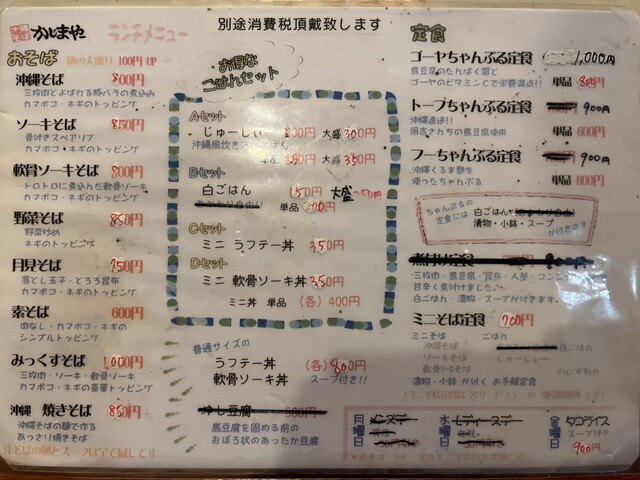 かじまや
ランチメニュー
別途消費税頂戴致します
おそば
麺の大盛り 100円 UP
沖縄そば 800円
三枚肉とよばれる豚バラの煮込み
カマボコ・ネギのトッピング
ソーキそば 850円
骨付きスペアリブ
カマボコ・ネギのトッピング
軟骨ソーキそば 800円
トロトロに煮込んだ軟骨ソーキ
カマボコ・ネギのトッピング
野菜そば 850円
野菜炒め
ネギのトッピング
月見そば 950円
落とし玉子・とろろ昆布
カマボコ・ネギのトッピング
素そば 600円
肉なし・カマボコ・ネギの
シンプルトッピング
みっくすそば 1,000円
三枚肉・ソーキ・軟骨ソーキ
カマボコ・ネギの豪華トッピング
沖縄 焼きそば 850円
沖縄そばの麺で作る
あっさり焼きそば
お得な
ごはんセット
Aセット
じゅーしぃ 200円 大盛 300円
沖縄風炊き込みごはん
大盛 350円
Bセット
白ごはん 150円 大盛+50円
単品 200円
Cセット
ミニ ラフテー丼 350円
Dセット
ミニ 軟骨ソーキ丼 350円
ミニ丼 単品 (各) 400円
普通サイズの
ラフテー丼 (各) 800円
軟骨ソーキ丼 スープ付き!!
ゆし豆腐 500円
島豆腐を固める前の
おぼろ状のあったか豆腐
定食
ゴーヤちゃんぷる定食 1,000円
島豆腐のたんぱく質と
ゴーヤのビタミンCで栄養満点!! 単品 800円
トーフちゃんぷる定食 900円
沖縄直送!!
島豆腐使用 単品 600円
フーちゃんぷる定食 900円
沖縄くるま麩を
使ったちゃんぷる 単品 600円
ちゃんぷるの
定食には
白ごはん
漬物・小鉢・スープ
が付きます
三枚肉・島豆腐・昆布・人参・コンニャク
甘辛く煮付けました。
白ごはん・漬物・スープが付きます。
ミニそば定食 700円
ミニそば ごはん
沖縄そば 白ごはん
ソーキそば じゅーしぃー
軟骨そば のいずれか
漬物・小鉢が付く お手軽定食
月曜日
メンズデー
水曜日
レディースデー
金曜日
タコライス
スープ付き
900円